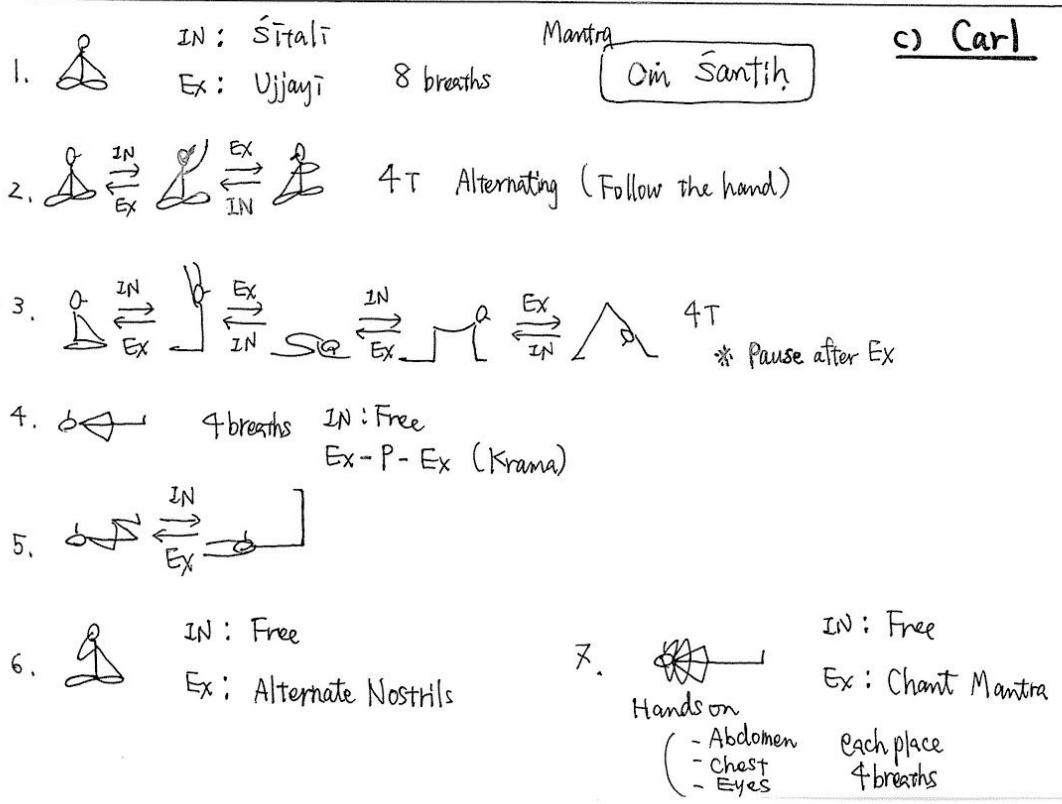 c) Carl
Mantra
Oṁ Śantiḥ
1.
IN : Śītalī
Ex : Ujjayī
8 breaths
2.
IN
Ex
EX
IN
4T Alternating (Follow the hand)
3.
IN
Ex
Ex
IN
IN
Ex
Ex
IN
4T
* Pause after Ex
4.
4 breaths
IN : Free
Ex - P - Ex (Krama)
5.
IN
Ex
6.
IN : Free
Ex : Alternate Nostrils
7.
IN : Free
Ex : Chant Mantra
Hands on
- Abdomen
- Chest
- Eyes
each place
4 breaths